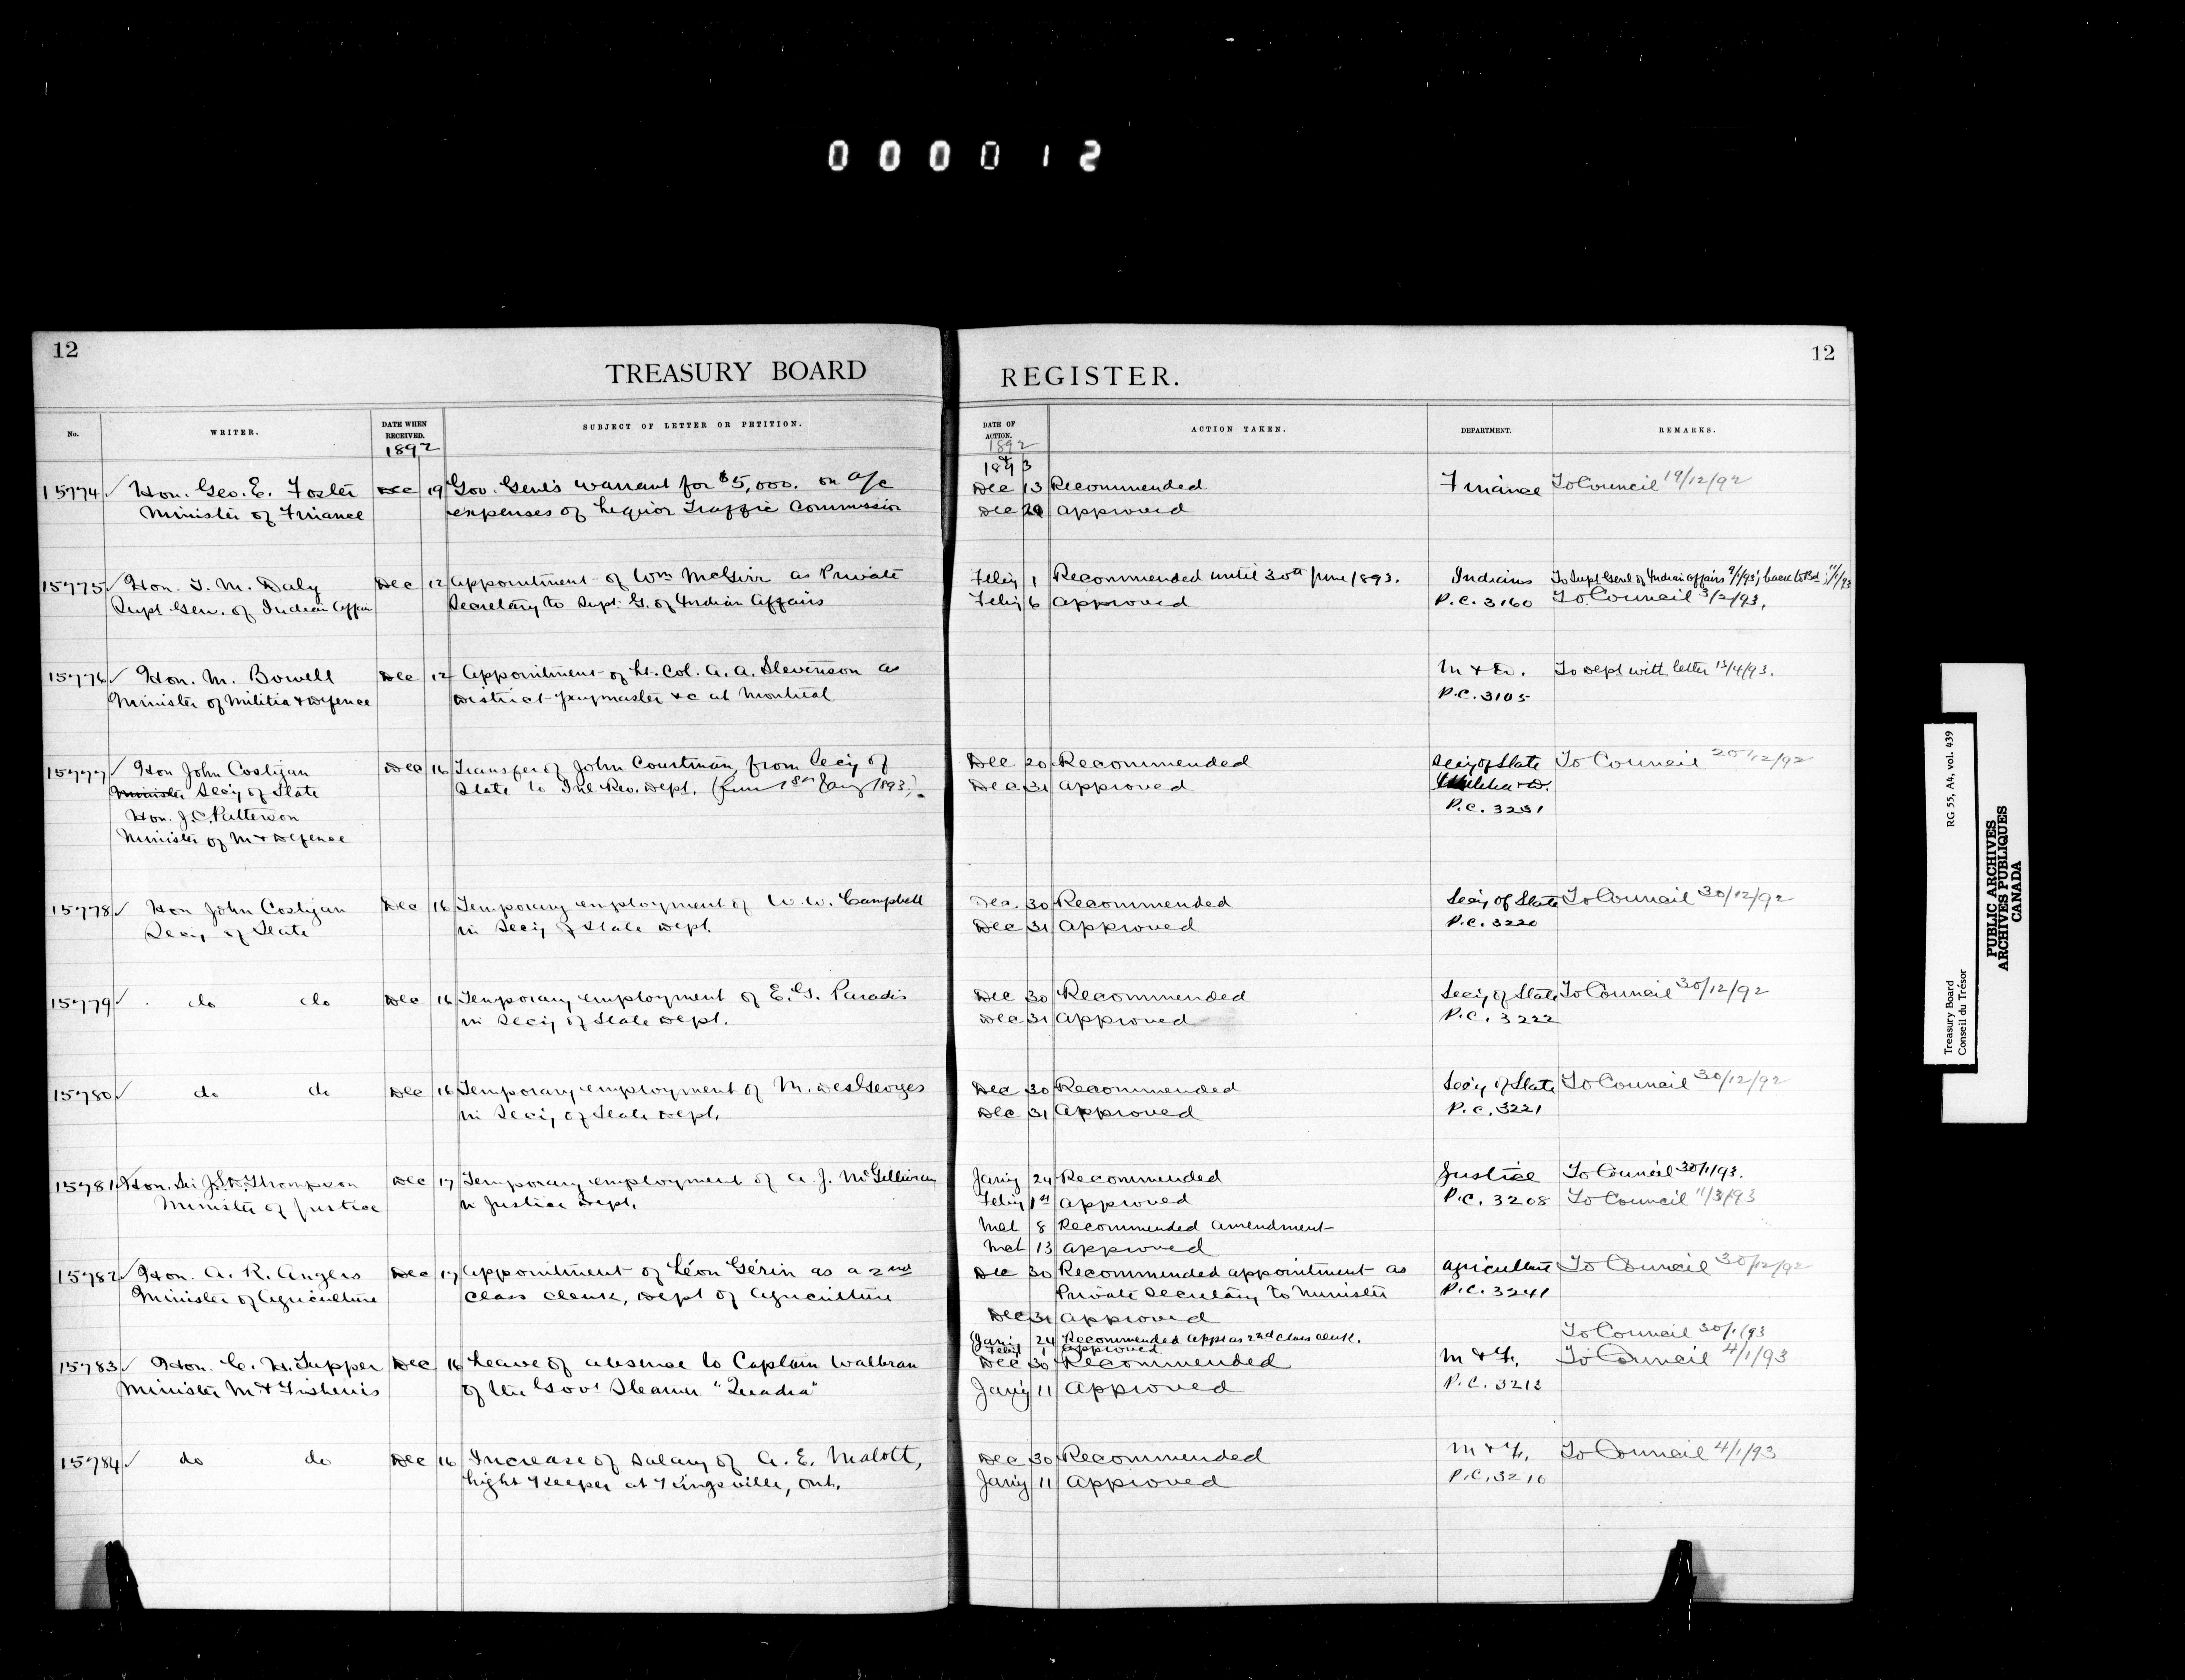 000012
12
TREASURY BOARD
No.
WRITER.
DATE WHEN RECEIVED.
1892
SUBJECT OF LETTER OR PETITION.
15774 Hon. Geo. E. Foster Dec 19 Gov. Genl's warrant for $5,000. on a/c
Minister of Finance expenses of Liquor Traffic Commission
15775 Hon. T. M. Daly Dec 12 Appointment of Wm McGirr as Private
Supt. Gen. of Indian Affairs Secretary to Supt. G. of Indian Affairs
15776 Hon. M. Bowell Dec 12 Appointment of Lt. Col. A. A. Stevenson as
Minister of Militia & Defence District paymaster &c at Montreal
15777 Hon John Costigan Dec 16 Transfer of John Courtman, from Sec'y of
Minister Sec'y of State State to Inl. Rev. Dept. (from 1st Jany 1893.)
Hon. J. C. Patterson
Minister of M & Defence
15778 Hon John Costigan Dec 16 Temporary employment of W. W. Campbell
Sec'y of State in Sec'y of State Dept.
15779 do do Dec 16 Temporary employment of E. G. Paradis
in Sec'y of State Dept.
15780 do do Dec 16 Temporary employment of M. DesGeorges
in Sec'y of State Dept.
15781 Hon. Sir J.S.D. Thompson Dec 17 Temporary employment of A. J. McGillivray
Minister of Justice in Justice Dept.
15782 Hon. A. R. Angers Dec 17 Appointment of Léon Gérin as a 2nd
Minister of Agriculture class clerk, Dept of Agriculture
15783 Hon. C. H. Tupper Dec 16 Leave of absence to Captain Walbran
Minister M. & Fisheries of the Govt Steamer "Quadra"
15784 do do Dec 16 Increase of salary of A. E. Malott,
Light Keeper at Kingsville, Ont.
12
REGISTER.
DATE OF ACTION.
1892
ACTION TAKEN.
DEPARTMENT.
REMARKS.
1893
Dec 13 Recommended Finance To Council 19/12/92
Dec 20 Approved
Feby 1 Recommended until 30th June 1893. Indians To Supt Genl of Indian Affairs 9/1/93; back to Bd 11/1/93
Feby 6 Approved P.C. 3160 To Council 3/2/93.
M & D. To Dept with letter 13/4/93.
P.C. 3105
Dec 20 Recommended Sec'y of State To Council 20/12/92
Dec 31 Approved Militia & D.
P.C. 3231
Dec. 30 Recommended Sec'y of State To Council 30/12/92
Dec 31 Approved P.C. 3220
Dec 30 Recommended Sec'y of State To Council 30/12/92
Dec 31 Approved P.C. 3222
Dec 30 Recommended Sec'y of State To Council 30/12/92
Dec 31 Approved P.C. 3221
Jan'y 24 Recommended Justice To Council 30/1/93.
Feb'y 1st Approved P.C. 3208 To Council 11/3/93
Mch 8 Recommended amendment
Mch 13 Approved
Dec 30 Recommended appointment as Agriculture To Council 30/12/92
Private Secretary to Minister P.C. 3241
Dec 31 Approved
Jan'y 24 Recommended appt as 2nd class clerk. To Council 30/1/93
Feb'y 1 Approved
Dec 30 Recommended M & F. To Council 4/1/93
Jan'y 11 Approved P.C. 3213
Dec 30 Recommended M & F. To Council 4/1/93
Jan'y 11 Approved P.C. 3210
Treasury Board RG 55, A4, vol. 439
Conseil du Trésor
PUBLIC ARCHIVES
ARCHIVES PUBLIQUES
CANADA